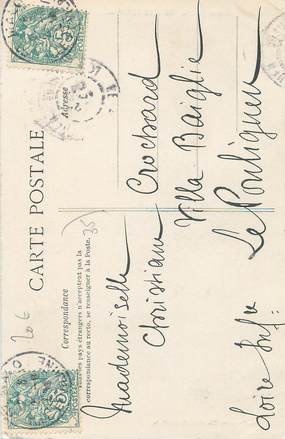 CARTE POSTALE
Correspondance
Tous les pays étrangers n'acceptent pas la
correspondance au recto, se renseigner à la Poste.
Adresse
35
20 €
Mademoiselle
Christiane Crochard
Villa Baiglie
Le Pouliguen
Loire Infre